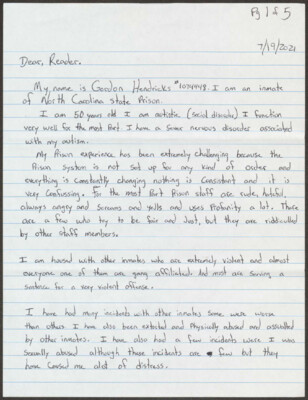 Pg 1 of 5
7/19/2021
Dear, Reader.
My name is Gordon Hendricks #1074448. I am an inmate
of North Carolina state Prison.
I am 50 years old I am autistic (social disorder) I function
very well for the most Part I have a some nervous disorder associated
with my autism.
My Prison experience has been extremely challenging because the
Prison system is not set up for any kind of order and
everything is constantly changing nothing is Consistant and it is
very Confussing. For the most Part Prison staff are rude, hateful,
always angry and screams and yells and uses Profanity a lot. There
are a few who try to be fair and Just, but they are riddiculed
by other staff members.
I am housed with other inmates who are extremely violent and almost
everyone one of them are gang affiliated. And most are serving a
sentence for a very violent offense.
I have had many incidents with other inmates some were worse
than others. I have also been extorted and Physically abused and assaulted
by other inmates. I have also had a few incidents were I was
sexually abused although these incidents are few but they
have Caused me alot of distress.